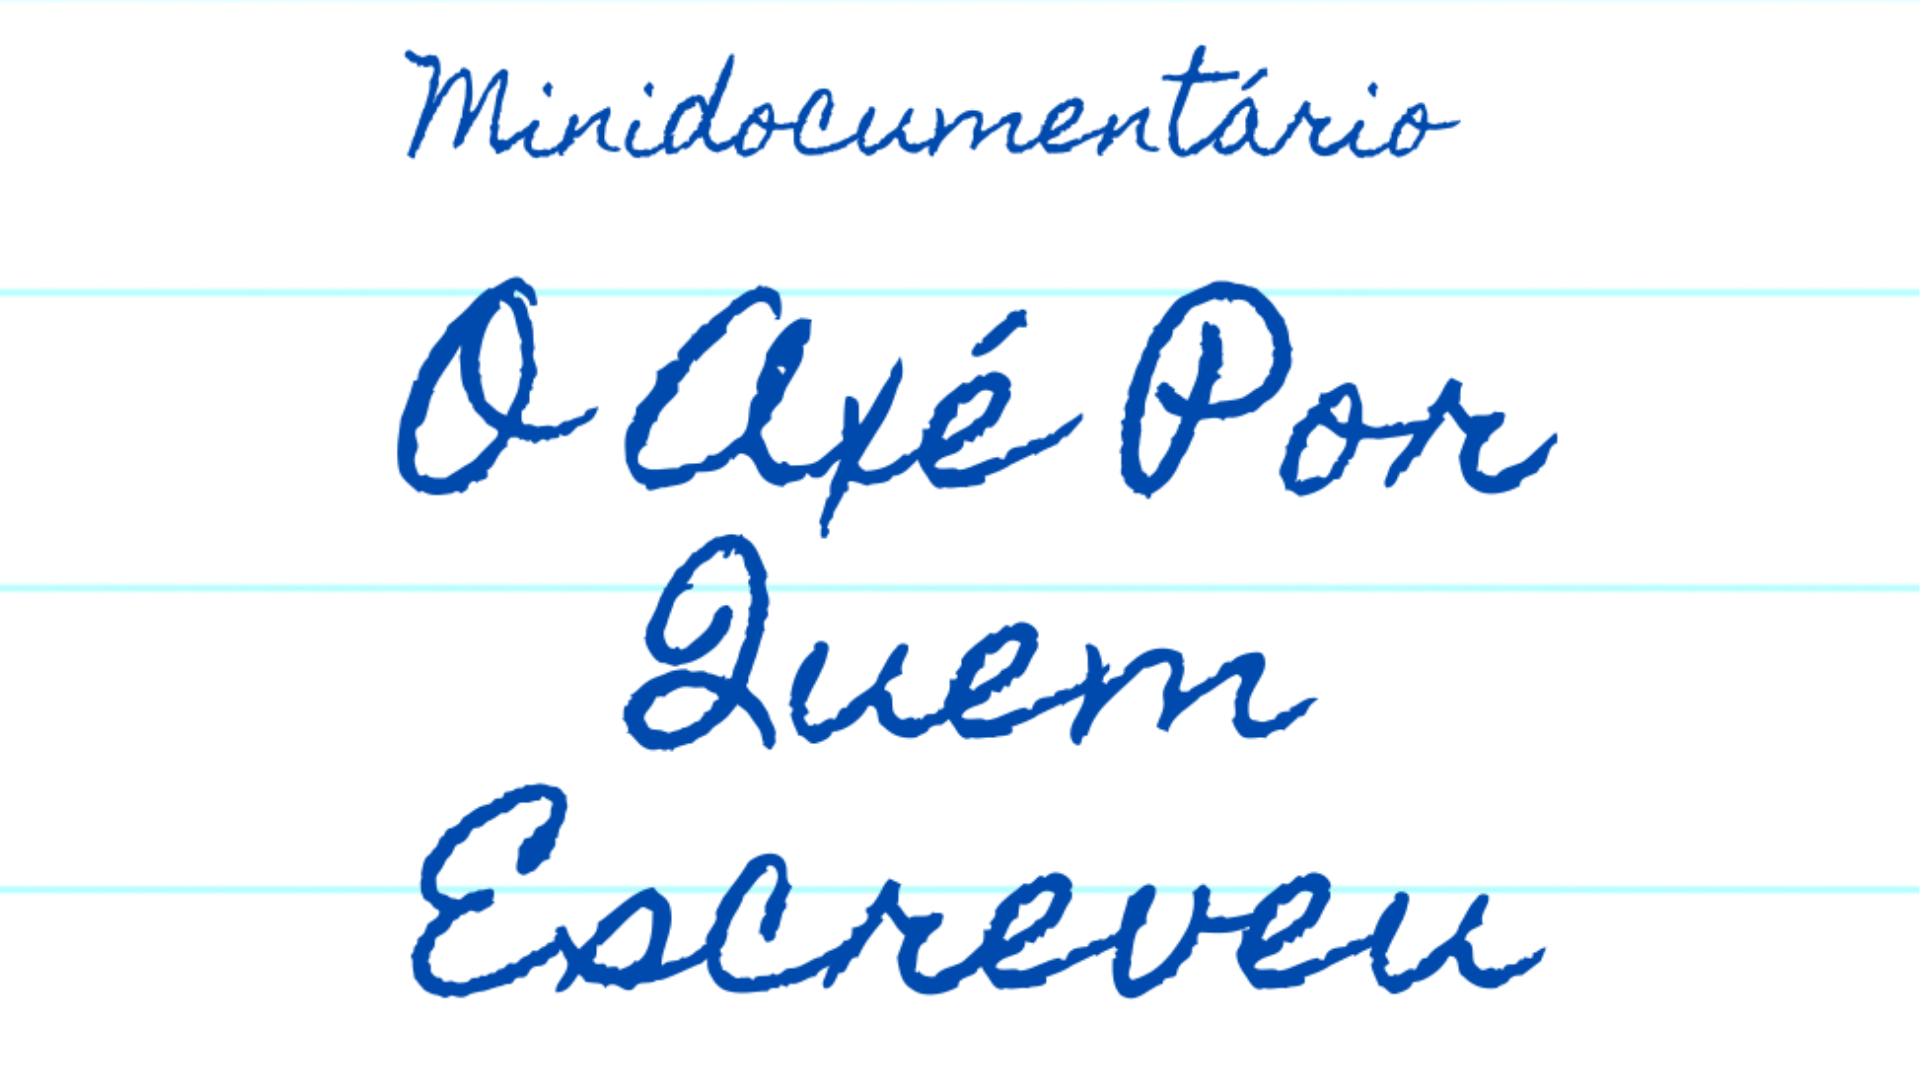 Minidocumentário
O Axé Por
Quem
Escreveu